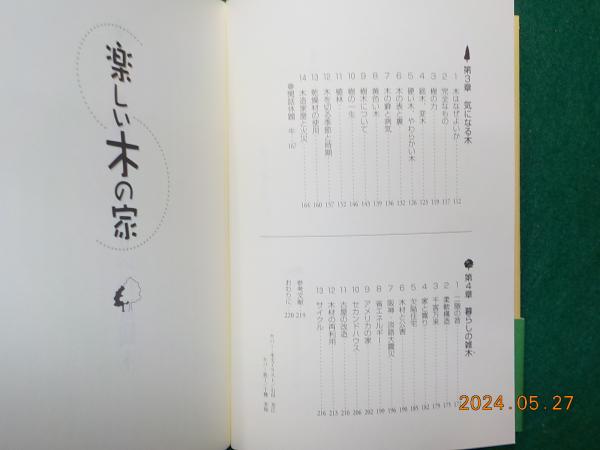 第3章 気になる木
1 木はなぜよいか 112
2 完全なもの 117
3 樹の力 119
4 銘木、変木 125
5 硬い木、やわらかい木 126
6 木の表と裏 132
7 木の癖と病気 136
8 黄色い木 139
9 樹木について 143
10 樹の一生 146
11 植林 152
12 木を切る季節と時期 157
13 乾燥材の使用 160
14 木造家屋と火災 164
閑話休題 牛 167
第4章 暮らしの雑木
1 二階の音
2 柔軟構造 175
3 千客万来 179
4 家と實り 182
5 欠陥住宅 185
6 木材と公害 190
7 阪神・淡路大震災 194
8 省エネルギー 196
9 アメリカの家 199
10 セカンドハウス 202
11 古屋の改造 206
12 木材の再利用 213
13 サイクル 216
参考文献 219
おわりに 220
楽しい木の家
2024.05.27